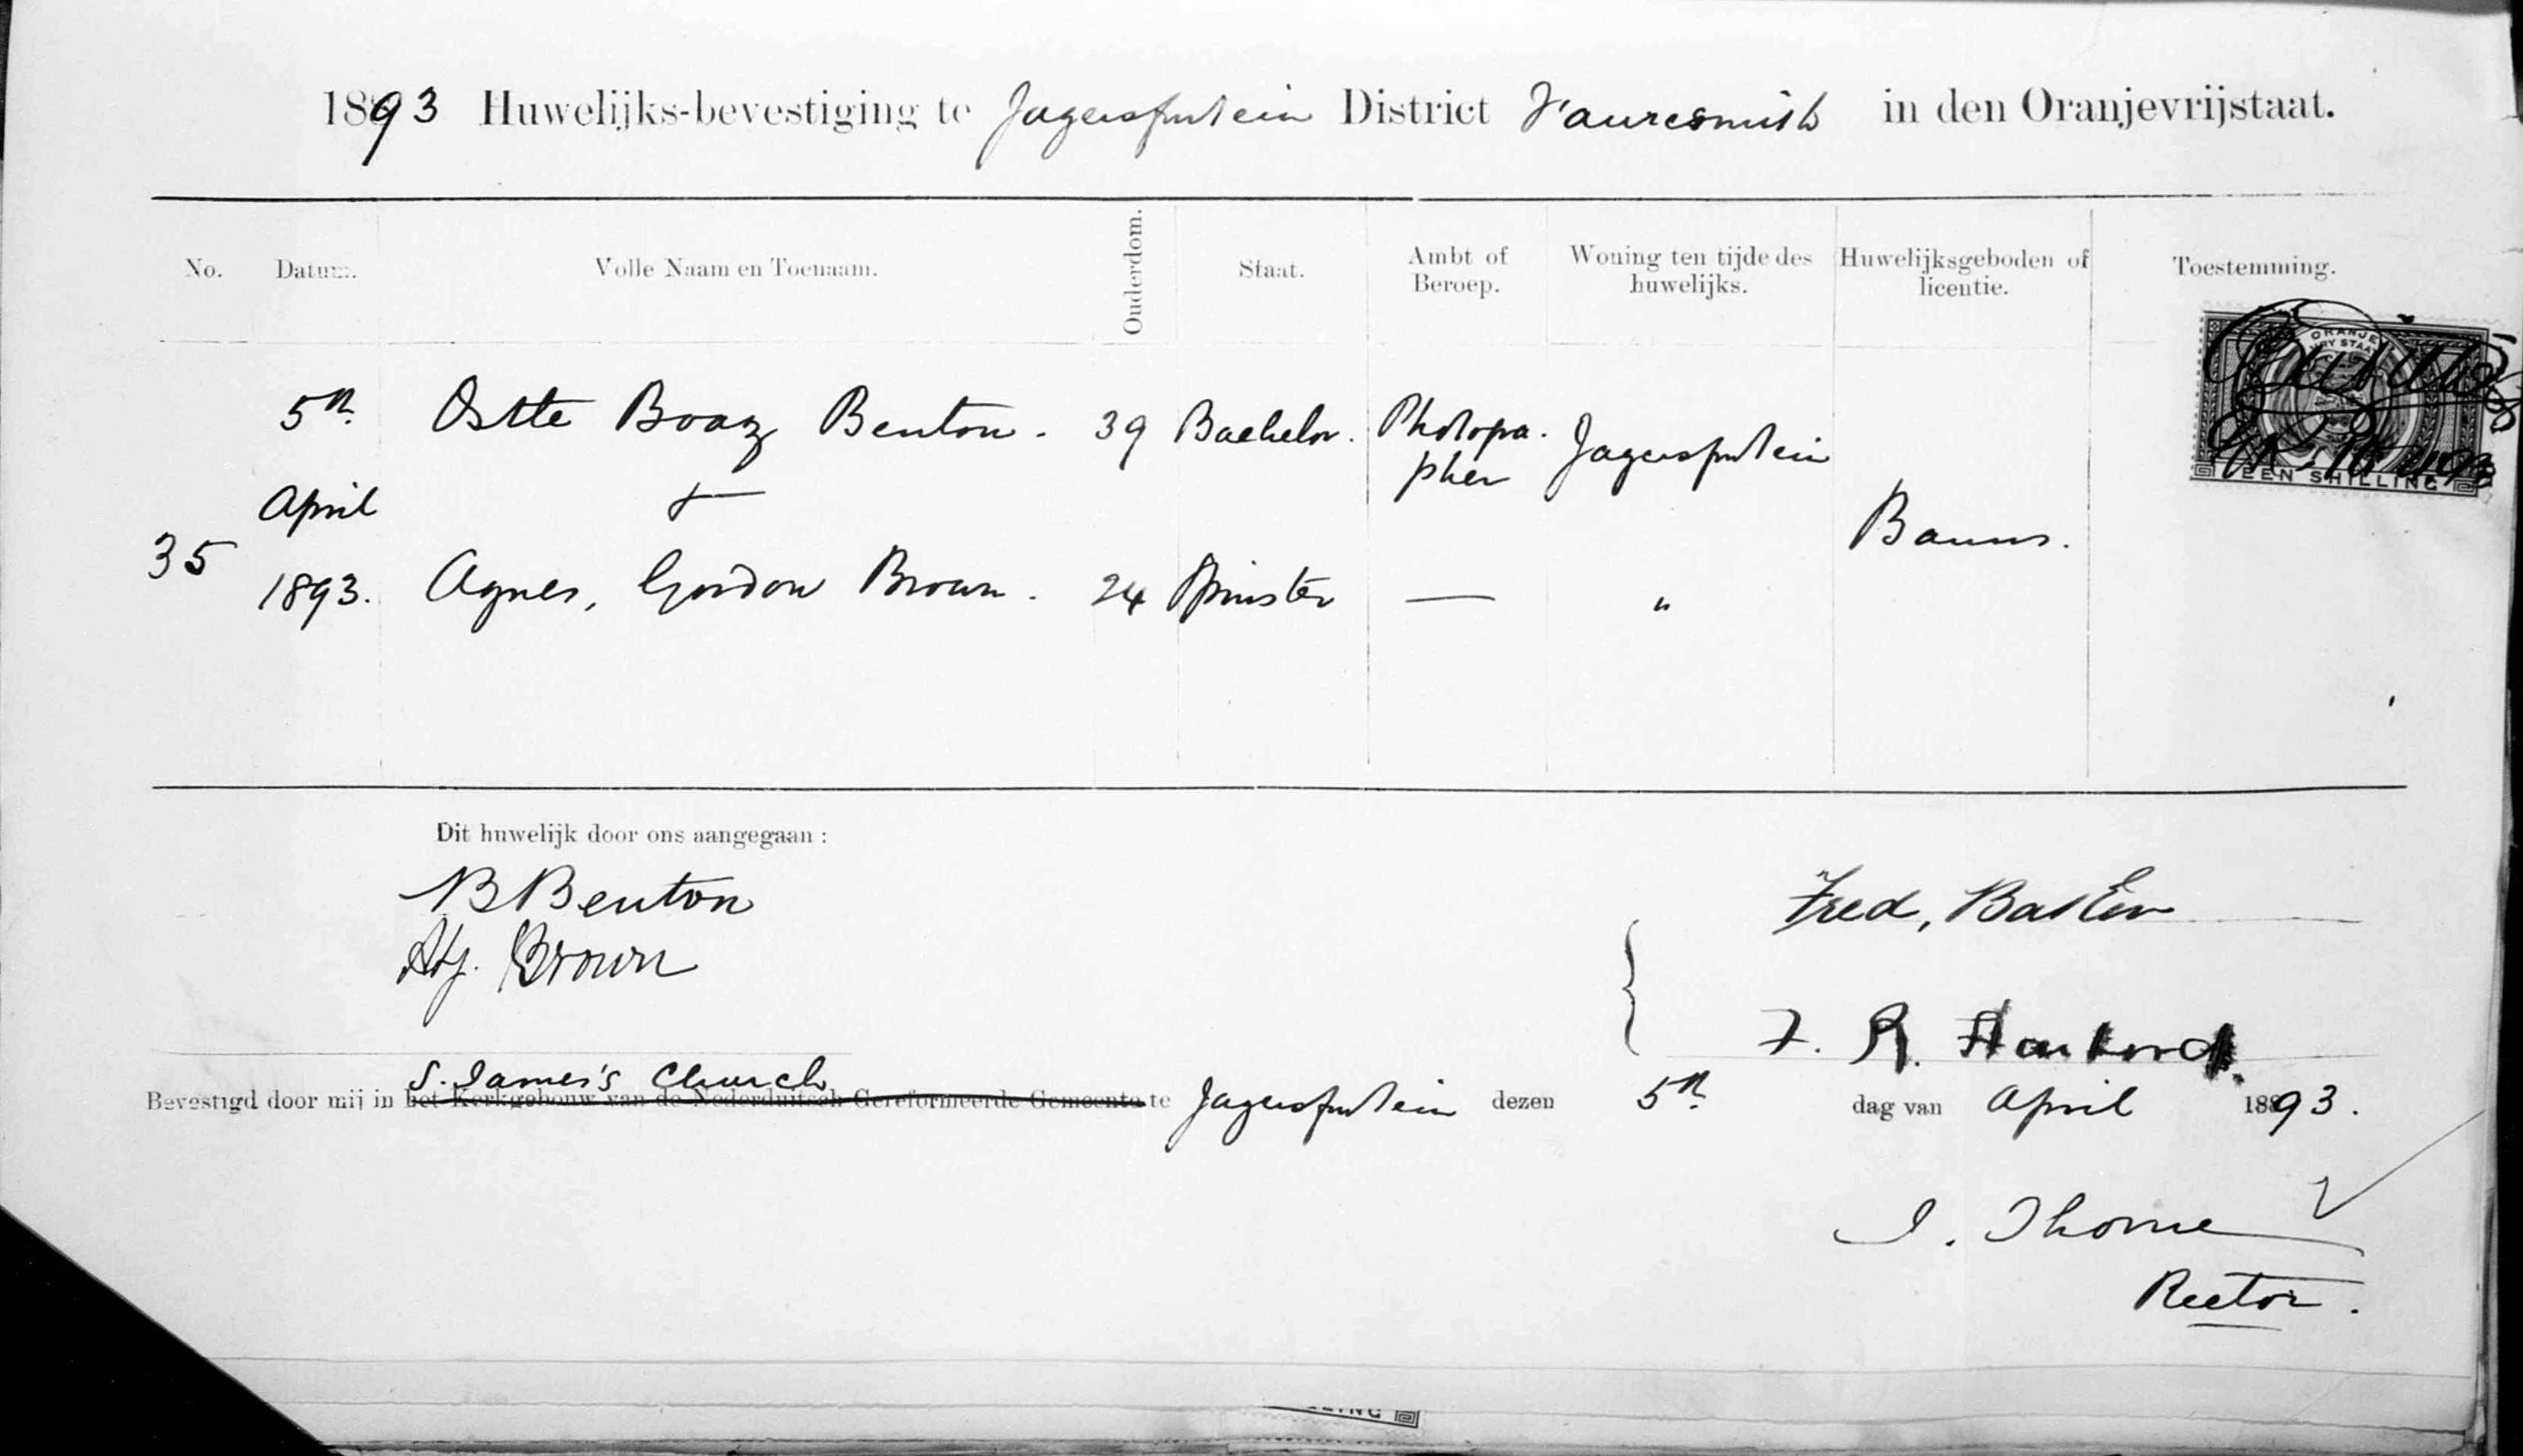 1893 Huwelijks-bevestiging te Jagersfontein District Fauresmith in den Oranjevrijstaat.
No. Datum. Volle Naam en Toenaam. Ouderdom. Staat. Ambt of Beroep. Woning ten tijde des huwelijks. Huwelijksgeboden of licentie. Toestemming.
ORANJE
VRY STAAT
EEN SHILLING
5th Boaz Benton. 39 Bachelor. Photogra.
pher Jagersfontein
April &
Banns.
35
1893. Agnes, Gordon Brown. 24 Spinster — "
Dit huwelijk door ons aangegaan :
B Benton
Fred, Baxter
Brown
F. R.
S. James's Church
Bevestigd door mij in het Kerkgebouw van de Nederduitsch Gereformeerde Gemeente te Jagersfontein dezen 5th dag van April 1893.
I. Thorne
Rector.